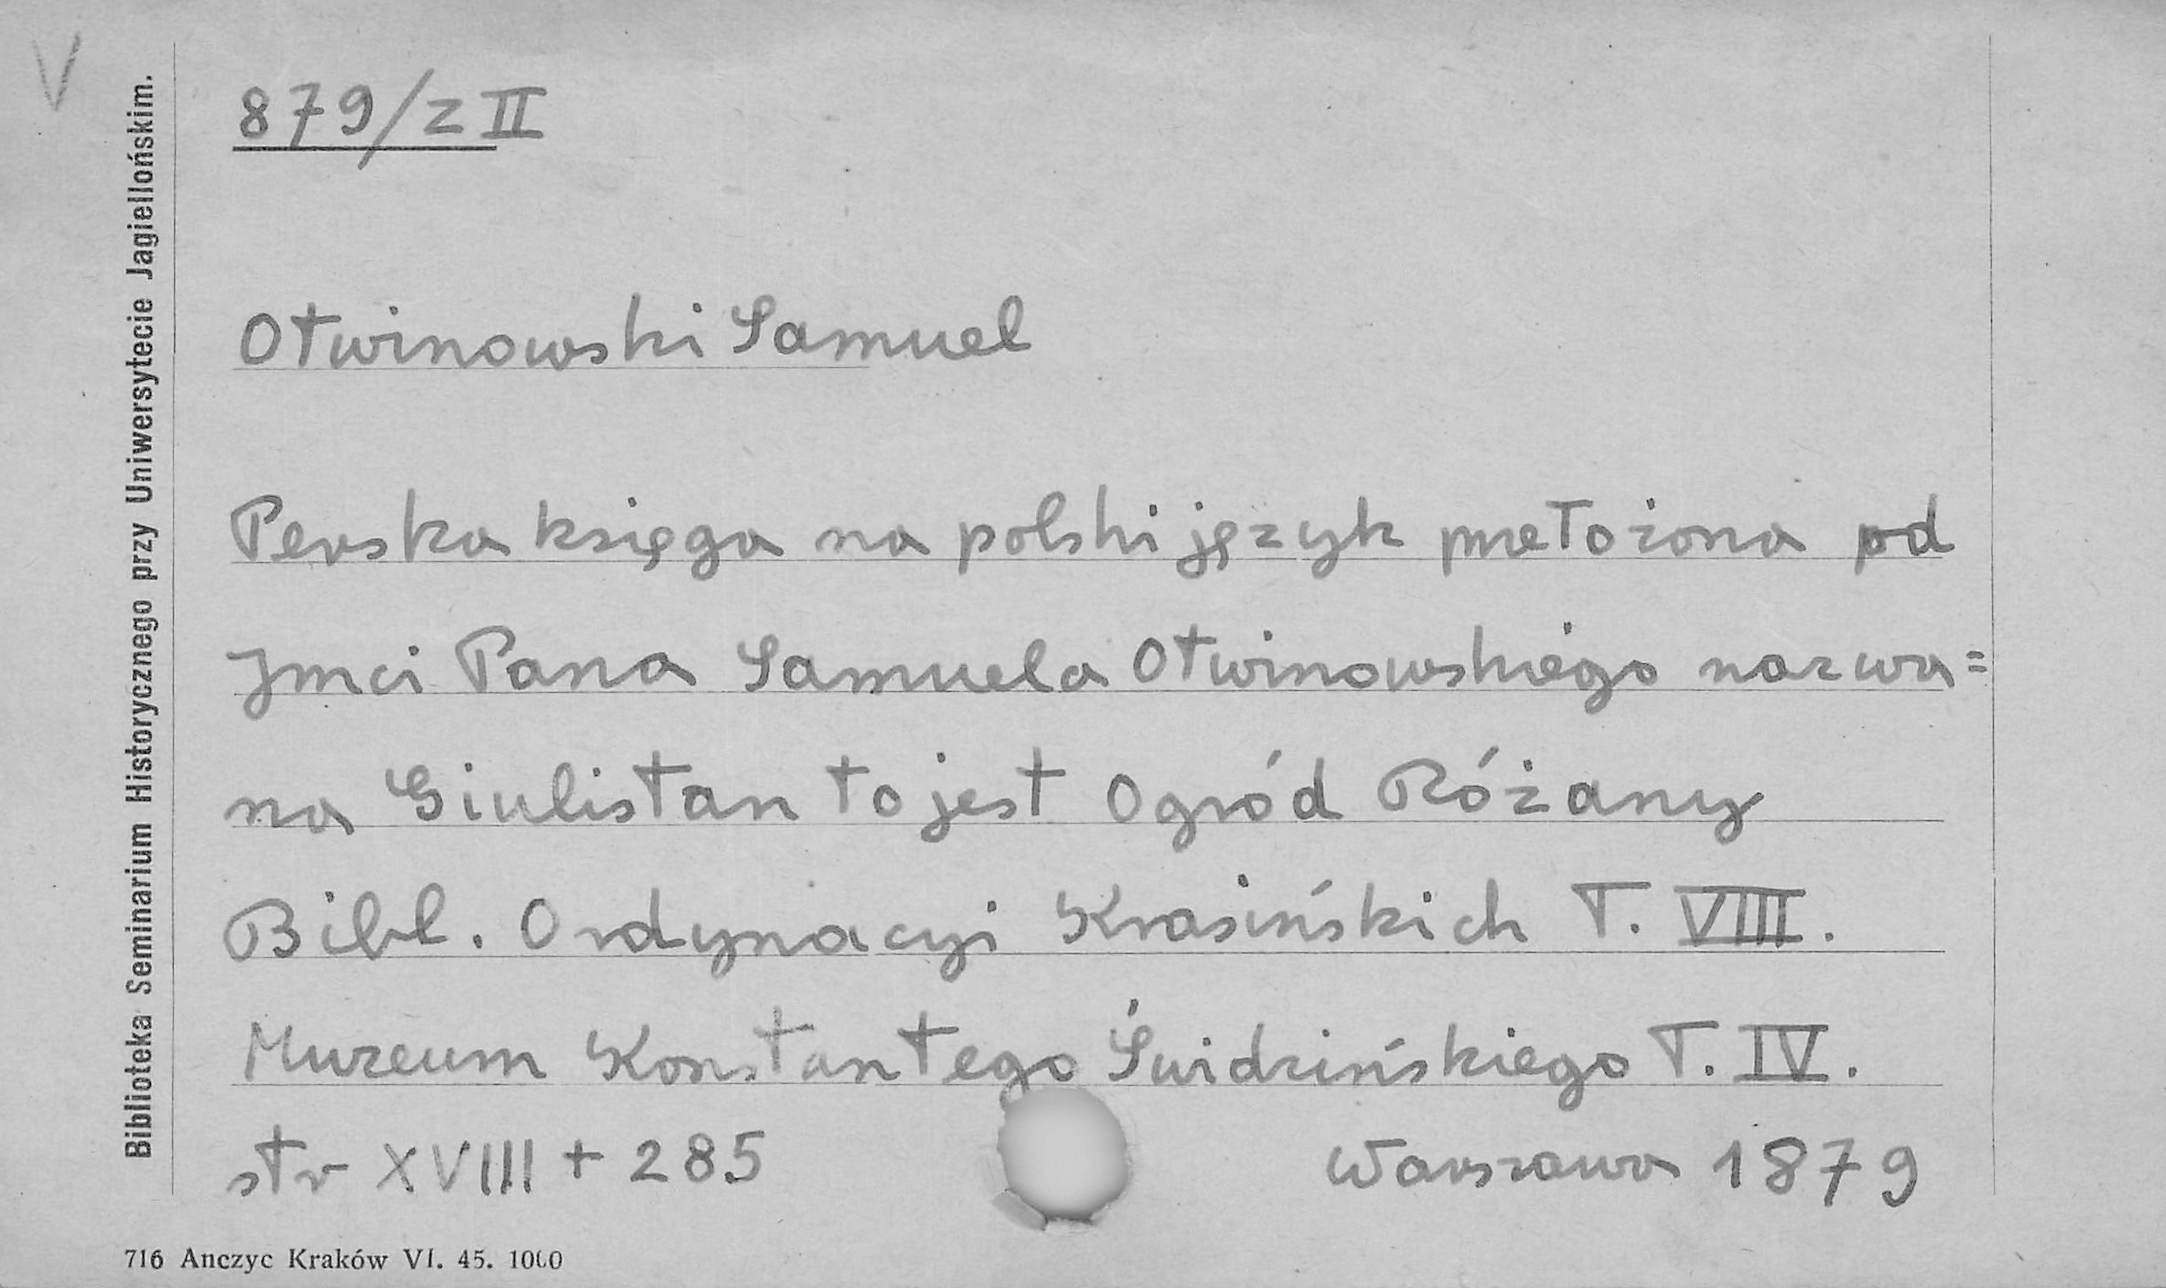 V
879/z II
Otwinowski Samuel
Perska księga na polski język przełożona od
Jmci Pana Samuela Otwinowskiego nazwa=
na Giulistan to jest Ogród Różany
Bibl. Ordynacyi Krasińskich T. VIII.
Muzeum Konstantego Świdzińskiego T. IV.
str XVIII + 285 Warszawa 1879
Biblioteka Seminarium Historycznego przy Uniwersytecie Jagiellońskim.
716 Anczyc Kraków VI. 45. 1000